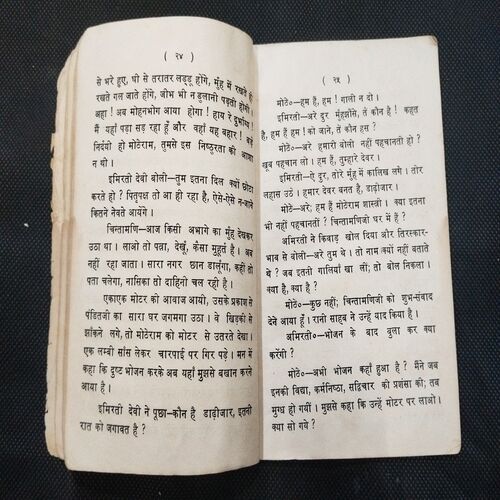 ( २४ )
से भरे हुए, घी से तरातर लड्डू होंगे, मुँह में रखते ही
रखते गल जाते होंगे, जीभ भी न डुलानी पड़ती होगी।
अहा ! अब मोहनभोग आया होगा ! हाय रे दुर्भाग्य !
मैं यहाँ पड़ा सड़ रहा हूँ और वहाँ यह बहार !
निर्दयी हो मोटेराम, तुमसे इस निष्ठुरता की आशा
न थी ।
इमिरती देवी बोली—तुम इतना दिल क्यों छोटा
करते हो ? पितृपक्ष तो आ ही रहा है, ऐसे-ऐसे न-जाने
कितने नेवते आयेंगे ।
चिन्तामणि—आज किसी अभागे का मुँह देखकर
उठा था । लाओ तो पत्रा, देखूँ, कैसा मुहूर्त है । अब
नहीं रहा जाता । सारा नगर छान डालूंगा, कहीं तो
पता चलेगा, नासिका तो दाहिनो चल रही है ।
एकाएक मोटर की आवाज आयी, उसके प्रकाश से
पंडितजी का सारा घर जगमगा उठा । वे खिड़की से
झाँकने लगे, तो मोटेराम को मोटर से उतरते देखा ।
एक लम्बी सांस लेकर चारपाई पर गिर पड़े । मन में
कहा कि दुष्ट भोजन करके अब यहाँ मुझसे बखान करने
आया है ।
इमिरती देवी ने पूछा—कौन है डाढ़ीजार, इतनी
रात को जगावत है ?
( २५ )
मोटे०—हम हैं, हम ! गाली न दो ।
इमिरती—अरे दुर मुँहझौंसे, तैं कौन है ! कहत
है, हम हैं हम ! को जाने, तैं कौन हस ?
मोटे०—अरे हमारी बोली नहीं पहचानती हो ?
खूब पहचान लो । हम हैं, तुम्हारे देवर ।
इमिरती—ऐ दुर, तोरे मुँह में कालिख लगे । तोर
लहास उठे । हमार देवर बनत है, डाढ़ीजार ।
मोटे—अरे; हम हैं मोटेराम शास्त्री । क्या इतना
भी नहीं पहचानती ? चिन्तामणिजी घर में हैं ?
अमिरती ने किवाड़ खोल दिया और तिरस्कार-
भाव से बोली—अरे तुम थे । तो नाम क्यों नहीं बताते
थे ? जब इतनी गालियाँ खा लीं; तो बोल निकला ।
क्या है, क्या है ?
मोटे०—कुछ नहीं; चिन्तामणिजी को शुभ-संवाद
देने आया हूँ । रानी साहब ने उन्हें याद किया है ।
अमिरती०—भोजन के बाद बुला कर क्या
करेंगी ?
मोटे०—अभी भोजन कहाँ हुआ है ? मैंने जब
इनकी विद्या, कर्मनिष्ठा, सद्विचार की प्रशंसा की; तब
मुग्ध हो गयीं । मुझसे कहा कि उन्हें मोटर पर लाओ ।
क्या सो गये ?